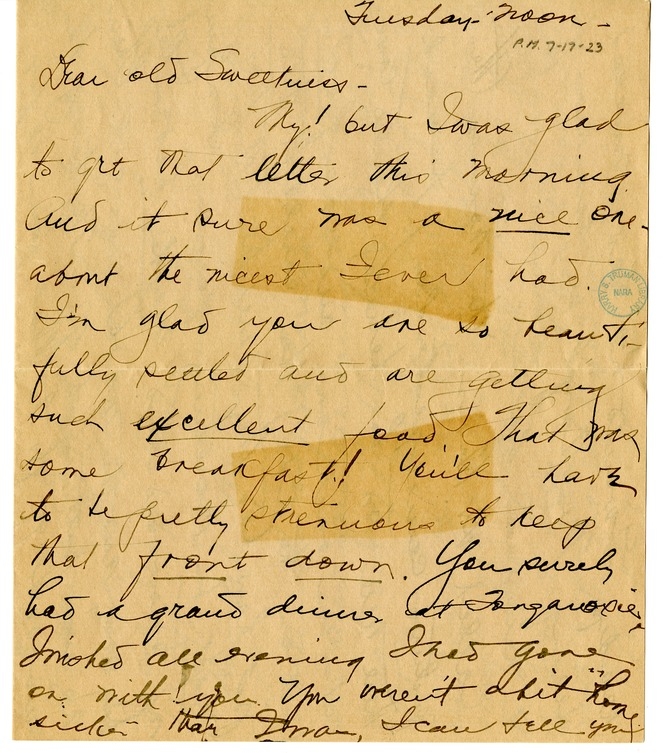 Tuesday - noon -
P.M. 7-17-23
Dear old Sweetness -
My! but I was glad
to get that letter this morning
And it sure was a nice one -
about the nicest I ever had.
HARRY S. TRUMAN LIBRARY
NARA
I'm glad you are so beauti-
fully settled and are getting
such excellent food. That was
some breakfast!! You'll have
to be pretty strenuous to keep
that front down. You surely
had a grand dinner at Tonganoxie.
I wished all evening I had gone
on with you. You weren't a bit "home
sicker" than I was, I can tell you